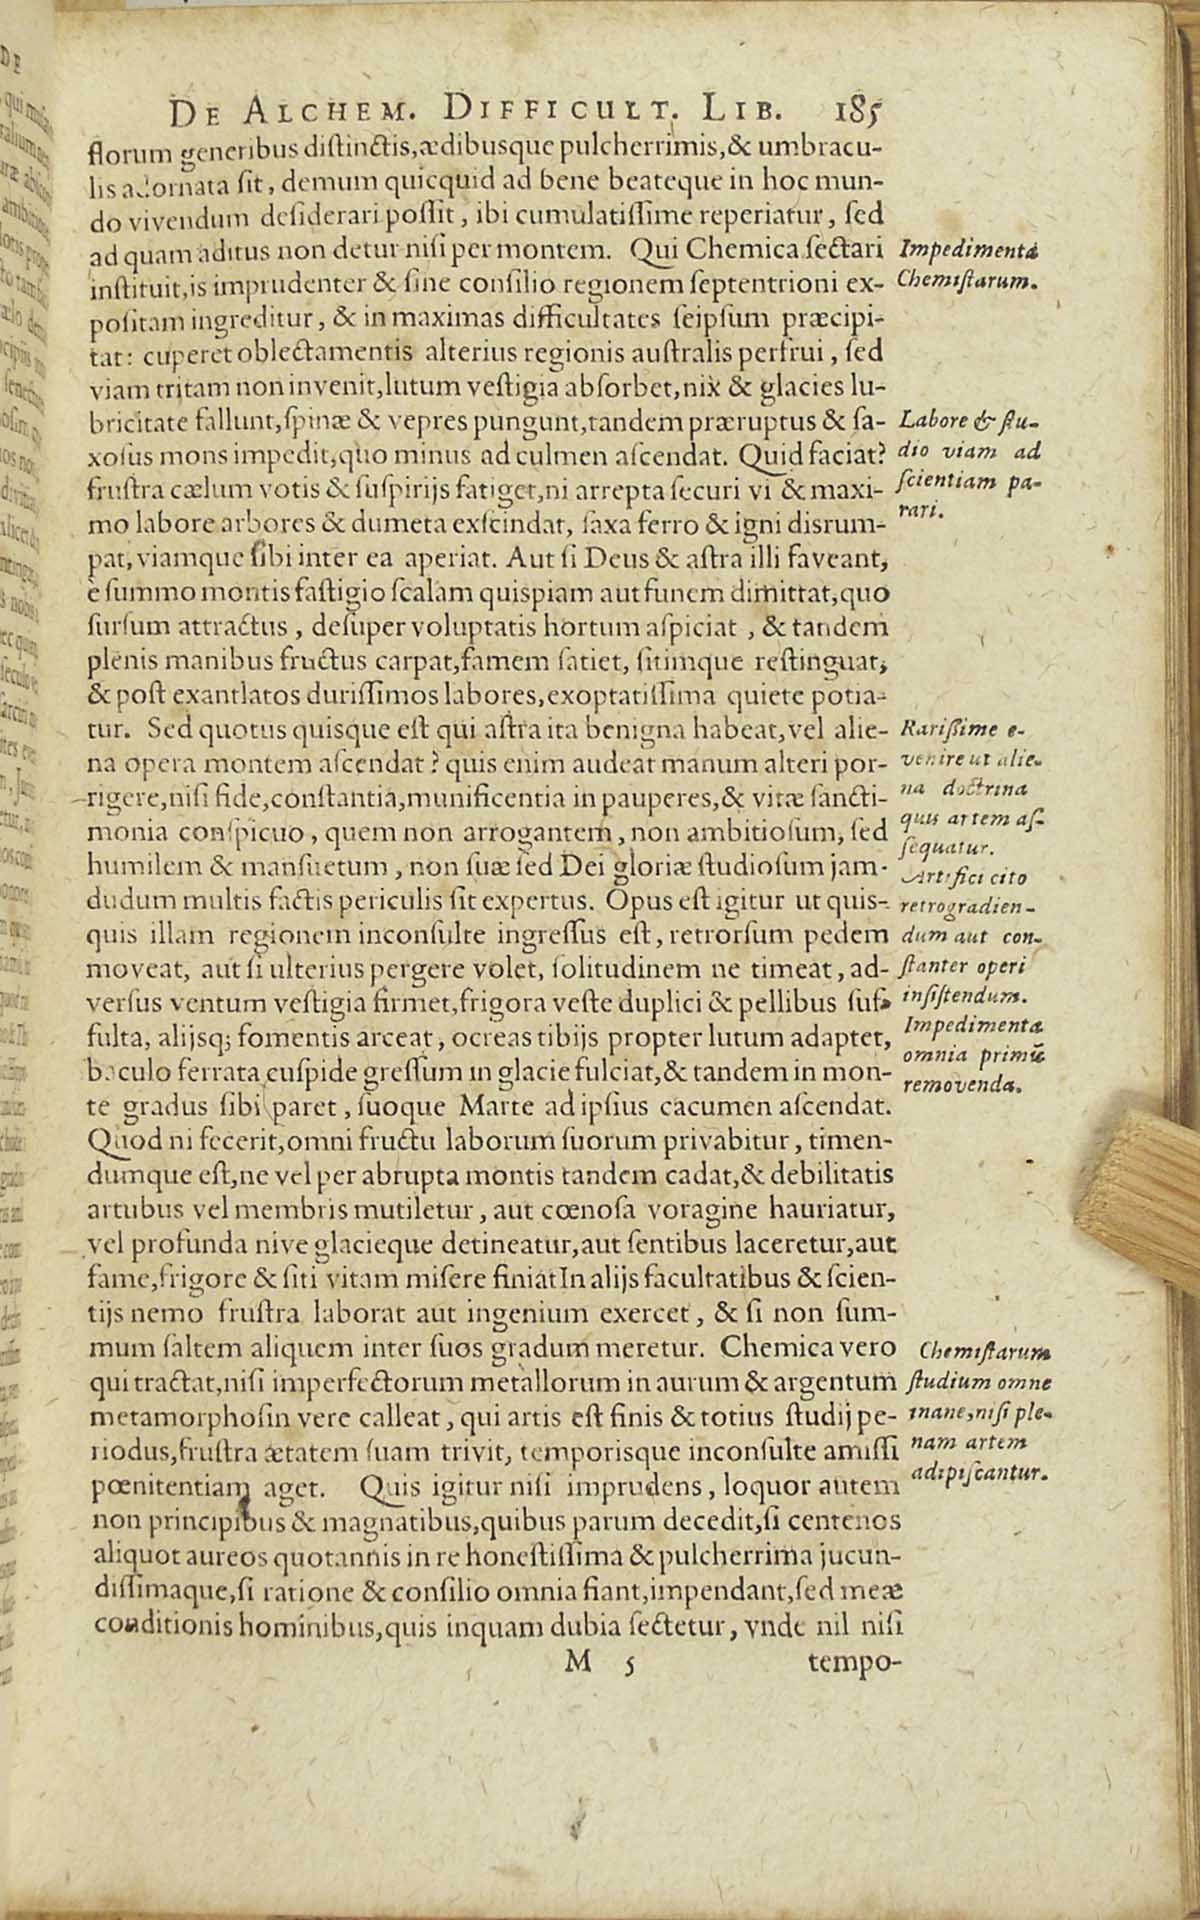 DE ALCHEM. DIFFICULT. LIB. 185
florum generibus distinctis, ædibusque pulcherrimis, & umbracu-
lis adornata sit, demum quicquid ad bene beateque in hoc mun-
do vivendum desiderari possit, ibi cumulatissime reperiatur, sed
ad quam aditus non detur nisi per montem. Qui Chemica sectari
instituit, is imprudenter & sine consilio regionem septentrioni ex-
positam ingreditur, & in maximas difficultates seipsum præcipi-
tat: cuperet oblectamentis alterius regionis australis perfrui, sed
viam tritam non invenit, lutum vestigia absorbet, nix & glacies lu-
bricitate fallunt, spinæ & vepres pungunt, tandem præruptus & sa-
xosus mons impedit, quo minus ad culmen ascendat. Quid faciat?
frustra cælum votis & suspirijs fatiget, ni arrepta securi vi & maxi-
mo labore arbores & dumeta exscindat, saxa ferro & igni disrum-
pat, viamque sibi inter ea aperiat. Aut si Deus & astra illi faveant,
è summo montis fastigio scalam quispiam aut funem dimittat, quo
sursum attractus, desuper voluptatis hortum aspiciat, & tandem
plenis manibus fructus carpat, famem satiet, sitimque restinguat,
& post exantlatos durissimos labores, exoptatissima quiete potia-
tur. Sed quotus quisque est qui astra ita benigna habeat, vel alie-
na opera montem ascendat? quis enim audeat manum alteri por-
rigere, nisi fide, constantia, munificentia in pauperes, & vitæ sancti-
monia conspicuo, quem non arrogantem, non ambitiosum, sed
humilem & mansuetum, non suæ sed Dei gloriæ studiosum jam-
dudum multis factis periculis sit expertus. Opus est igitur ut quis-
quis illam regionem inconsulte ingressus est, retrorsum pedem
moveat, aut si ulterius pergere volet, solitudinem ne timeat, ad-
versus ventum vestigia firmet, frigora veste duplici & pellibus suf-
fulta, alijsq; fomentis arceat, ocreas tibijs propter lutum adaptet,
baculo ferrata cuspide gressum in glacie fulciat, & tandem in mon-
te gradus sibi paret, suoque Marte ad ipsius cacumen ascendat.
Quod ni fecerit, omni fructu laborum suorum privabitur, timen-
dumque est, ne vel per abrupta montis tandem cadat, & debilitatis
artubus vel membris mutiletur, aut cœnosa voragine hauriatur,
vel profunda nive glacieque detineatur, aut sentibus laceretur, aut
fame, frigore & siti vitam misere finiat In alijs facultatibus & scien-
tijs nemo frustra laborat aut ingenium exercet, & si non sum-
mum saltem aliquem inter suos gradum meretur. Chemica vero
qui tractat, nisi imperfectorum metallorum in aurum & argentum
metamorphosin vere calleat, qui artis est finis & totius studij pe-
riodus, frustra ætatem suam trivit, temporisque inconsulte amissi
pœnitentiam aget. Quis igitur nisi imprudens, loquor autem
non principibus & magnatibus, quibus parum decedit, si centenos
aliquot aureos quotannis in re honestissima & pulcherrima jucun-
dissimaque, si ratione & consilio omnia fiant, impendant, sed meæ
conditionis hominibus, quis inquam dubia sectetur, vnde nil nisi
M 5 tempo-
Impedimenta
Chemistarum.
Labore & stu-
dio viam ad
scientiam pa-
rari.
Rarissime e-
venire ut alie-
na doctrina
quis artem as-
sequatur.
Artifici cito
retrogradien-
dum aut con-
stanter operi
insistendum.
Impedimenta
omnia primũ
removenda.
Chemistarum
studium omne
inane, nisi ple-
nam artem
adipiscantur.